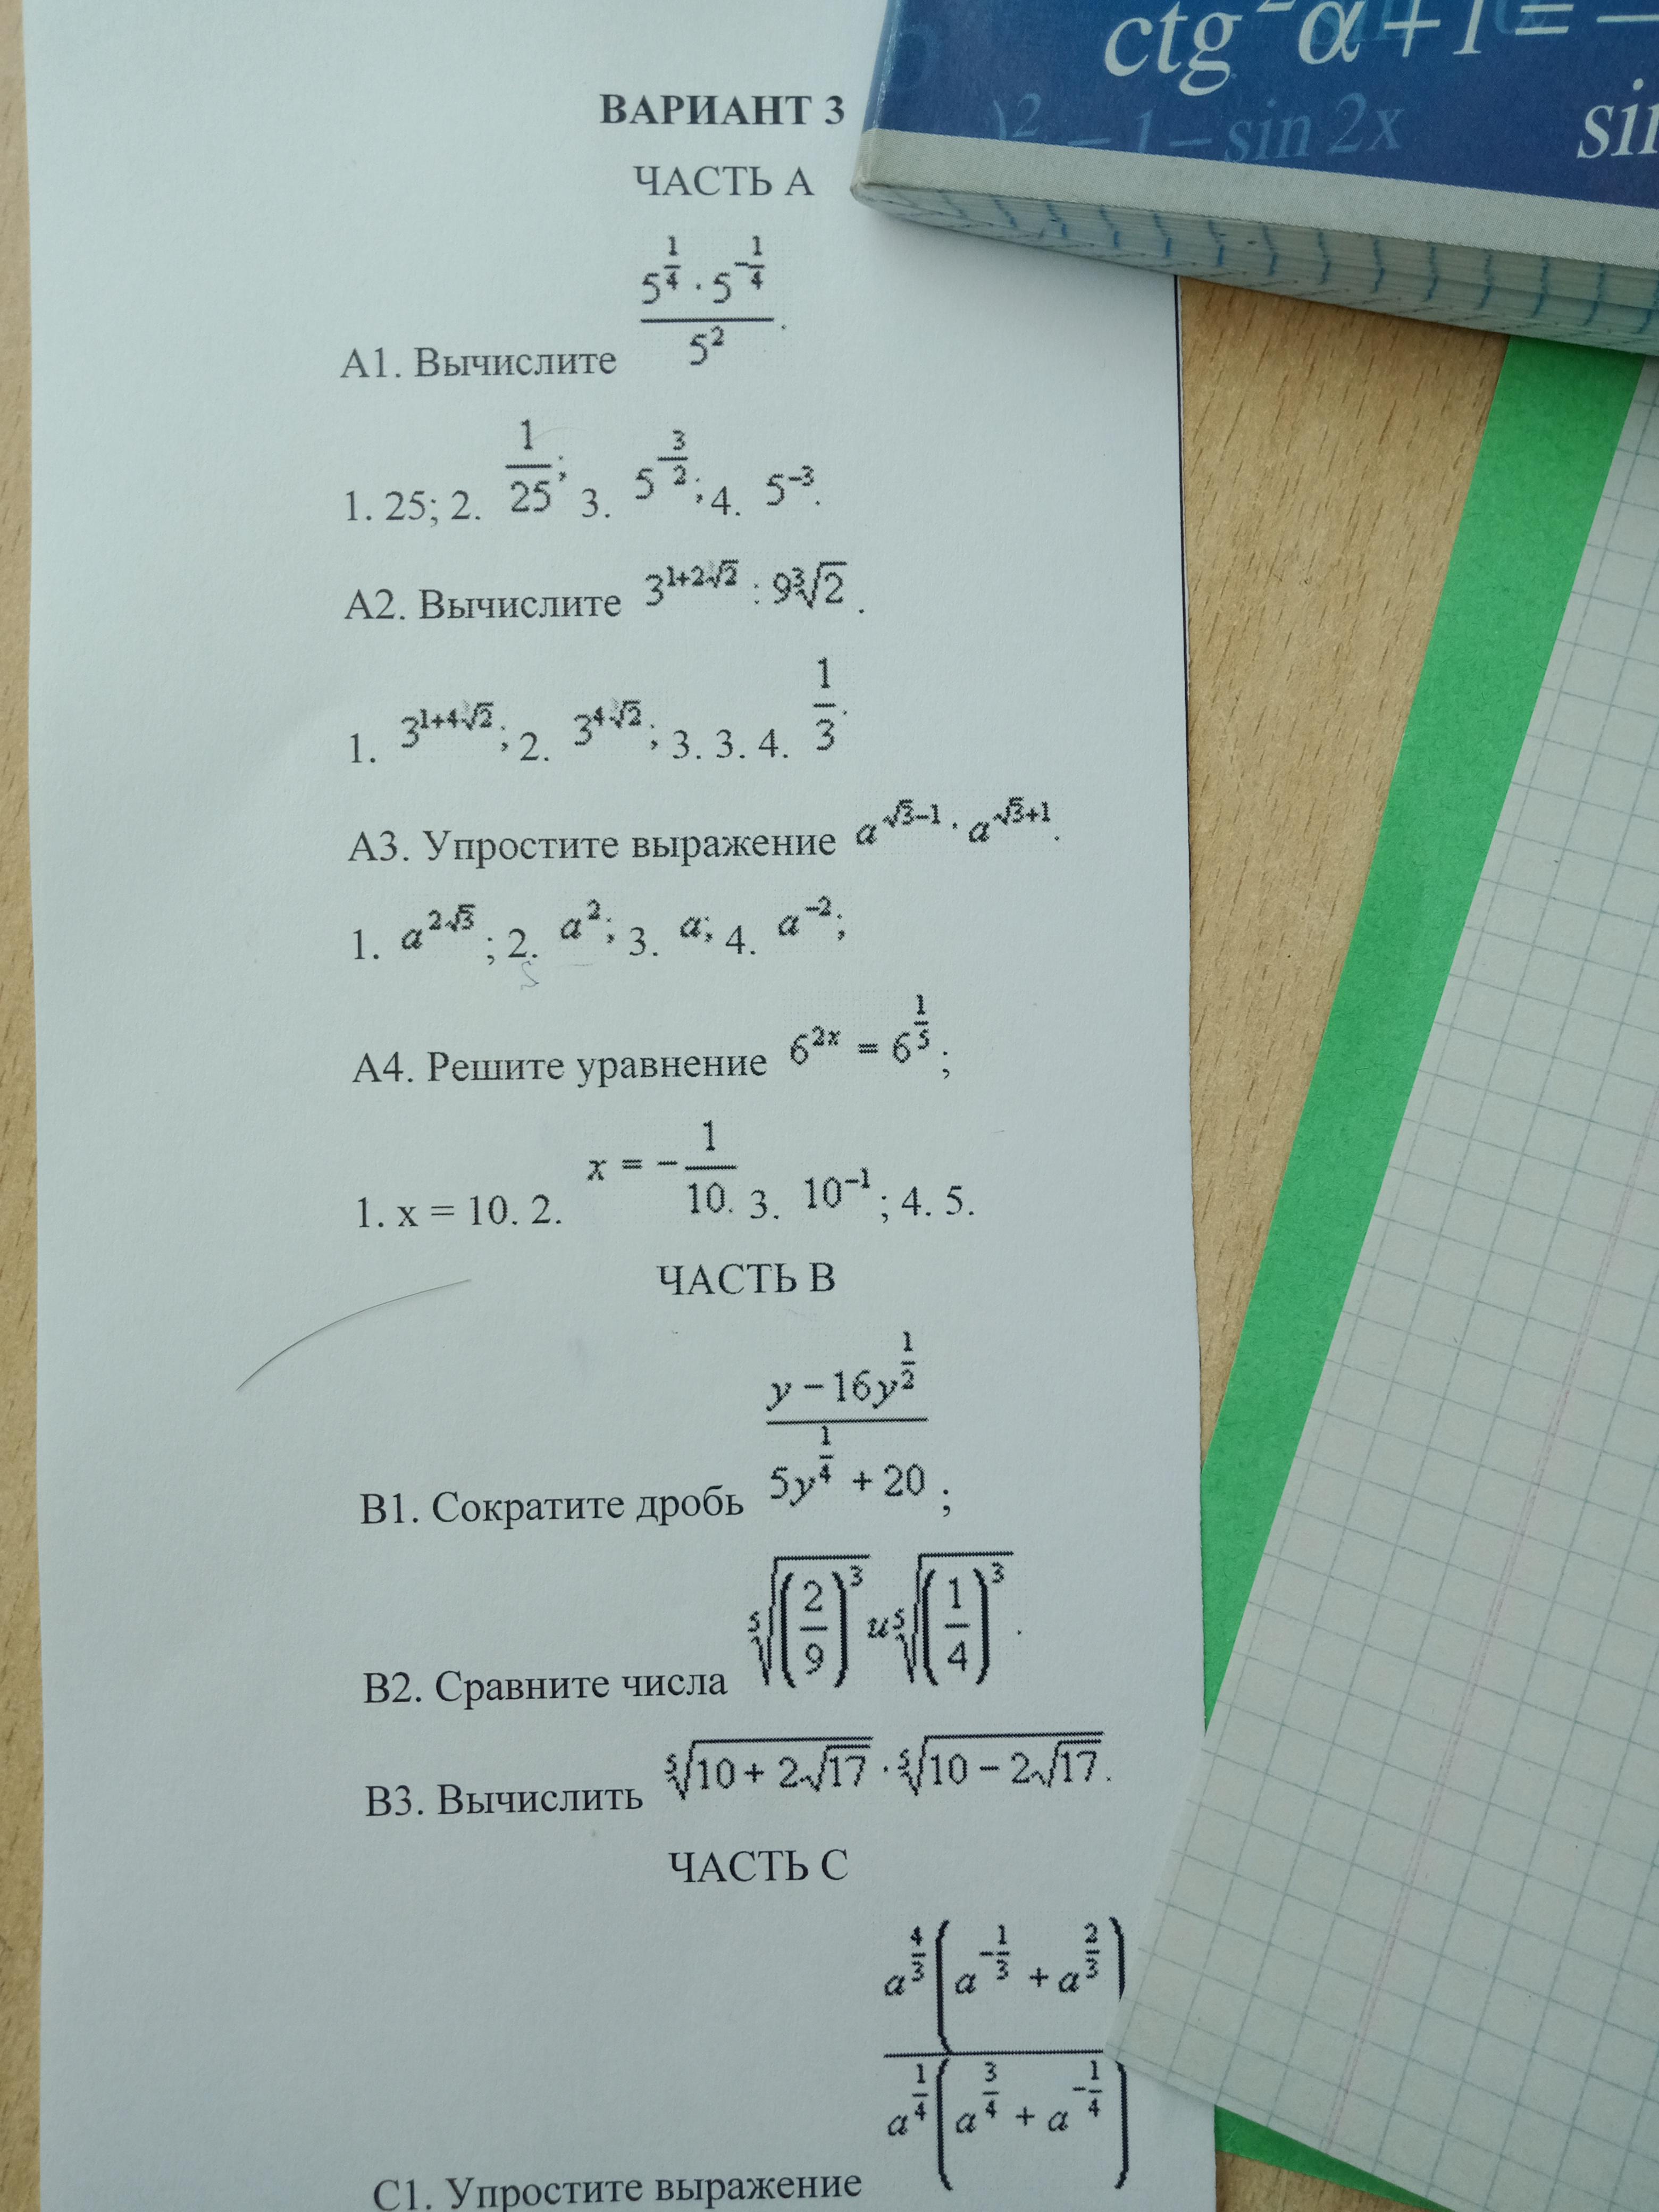 ctg²α+1=
)² – 1 – sin 2x
ВАРИАНТ 3
ЧАСТЬ А
А1. Вычислите (5^(1/4) · 5^(-1/4))/5².
1. 25; 2. 1/25; 3. 5^(-3/2); 4. 5^(-3).
А2. Вычислите 3^(1+2∛2) : 9∛2.
1. 3^(1+4∛2); 2. 3^(4∛2); 3. 3. 4. 1/3.
А3. Упростите выражение a^(√3–1) · a^(√3+1).
1. a^(2√3); 2. a²; 3. a; 4. a^(-2);
А4. Решите уравнение 6^(2x) = 6^(1/5);
1. x = 10. 2. x = –1/10. 3. 10^(-1); 4. 5.
ЧАСТЬ В
В1. Сократите дробь (y – 16y^(1/2))/(5y^(1/4) + 20);
В2. Сравните числа ⁵√((2/9)³) и ⁵√((1/4)³).
В3. Вычислить ⁵√(10 + 2√17) · ⁵√(10 – 2√17).
ЧАСТЬ С
С1. Упростите выражение (a^(4/3)(a^(-1/3) + a^(2/3)))/(a^(1/4)(a^(3/4) + a^(-1/4)))